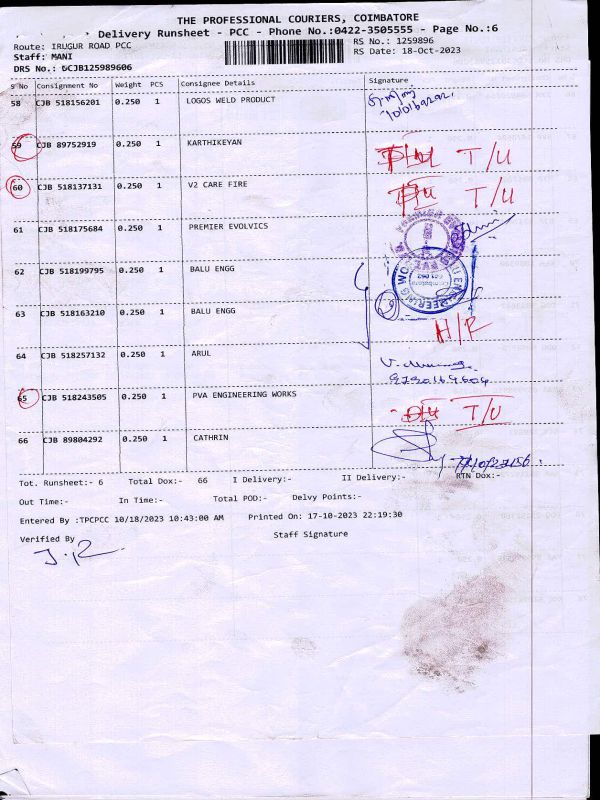 THE PROFESSIONAL COURIERS, COIMBATORE
Delivery Runsheet - PCC - Phone No.:0422-3505555 - Page No.:6
Route: IRUGUR ROAD PCC RS No.: 1259896
Staff: MANI RS Date: 18-Oct-2023
DRS No.: 6CJB125989606
S No Consignment No Weight PCS Consignee Details Signature
58 CJB 518156201 0.250 1 LOGOS WELD PRODUCT
59 CJB 89752919 0.250 1 KARTHIKEYAN T/U
60 CJB 518137131 0.250 1 V2 CARE FIRE T/U
61 CJB 518175684 0.250 1 PREMIER EVOLVICS
62 CJB 518199795 0.250 1 BALU ENGG
63 CJB 518163210 0.250 1 BALU ENGG H/R
64 CJB 518257132 0.250 1 ARUL
65 CJB 518243505 0.250 1 PVA ENGINEERING WORKS T/U
66 CJB 89804292 0.250 1 CATHRIN
Tot. Runsheet:- 6 Total Dox:- 66 I Delivery:- II Delivery:- RTN Dox:-
Out Time:- In Time:- Total POD:- Delvy Points:-
Entered By :TPCPCC 10/18/2023 10:43:00 AM Printed On: 17-10-2023 22:19:30
Verified By Staff Signature
J.R